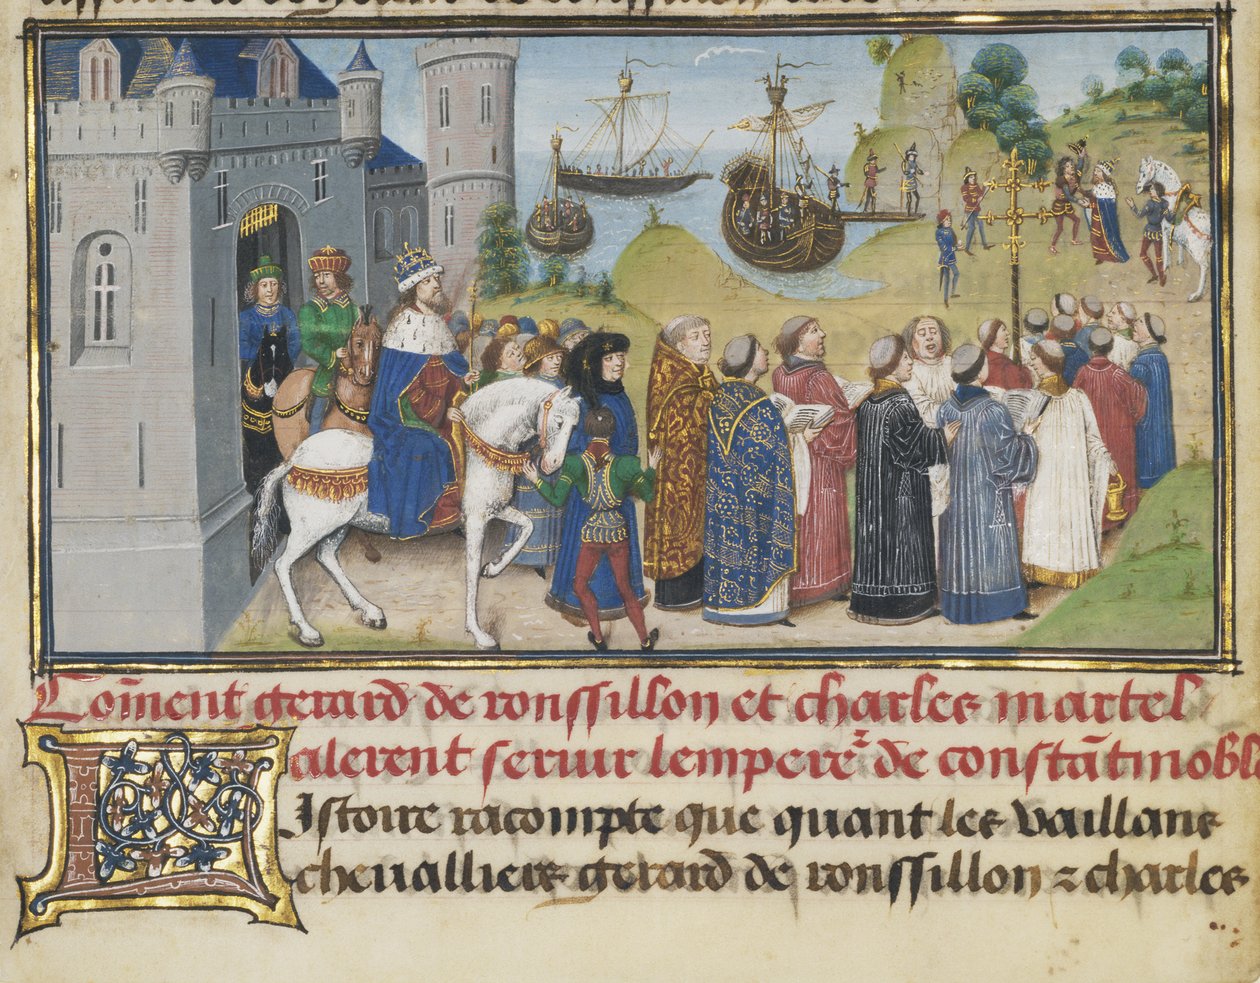 Com̄ent gerard de ronssillon et charles martel
alerent seruir lempere͛ de constātinoble
Listoire racompte que quant les vaillans
cheualliers gerard de ronssillon ⁊ charles